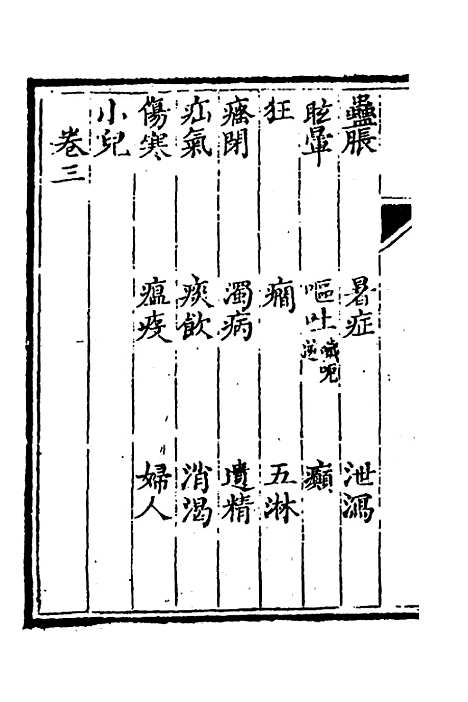 蠱脹 暑症 泄瀉
眩暈 嘔吐 噦呃逆 癲
狂 癇 五淋
癃閉 濁病 遺精
疝氣 痰飲 消渴
傷寒 瘟疫 婦人
小兒
卷三